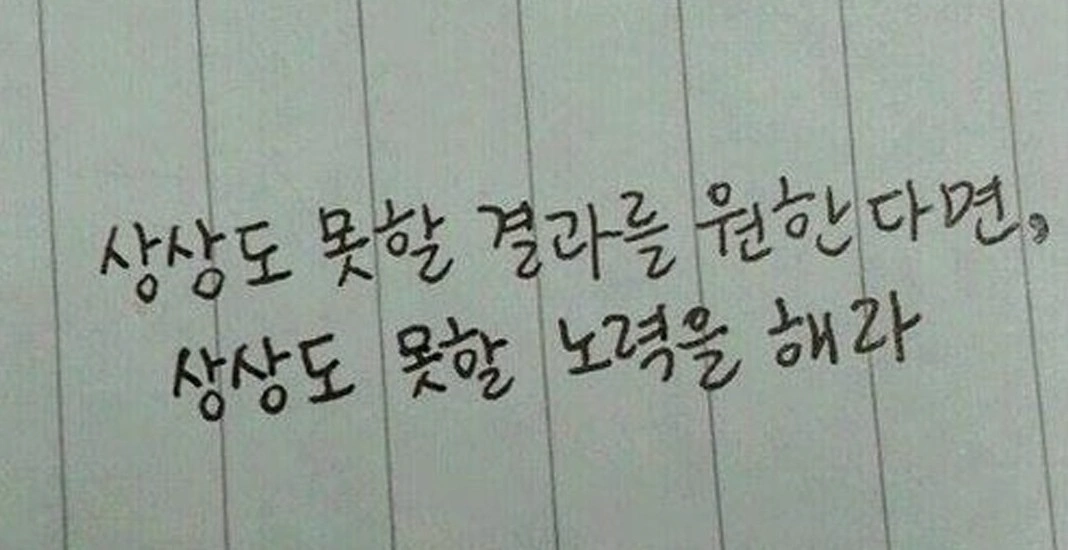 상상도 못할 결과를 원한다면,
상상도 못할 노력을 해라